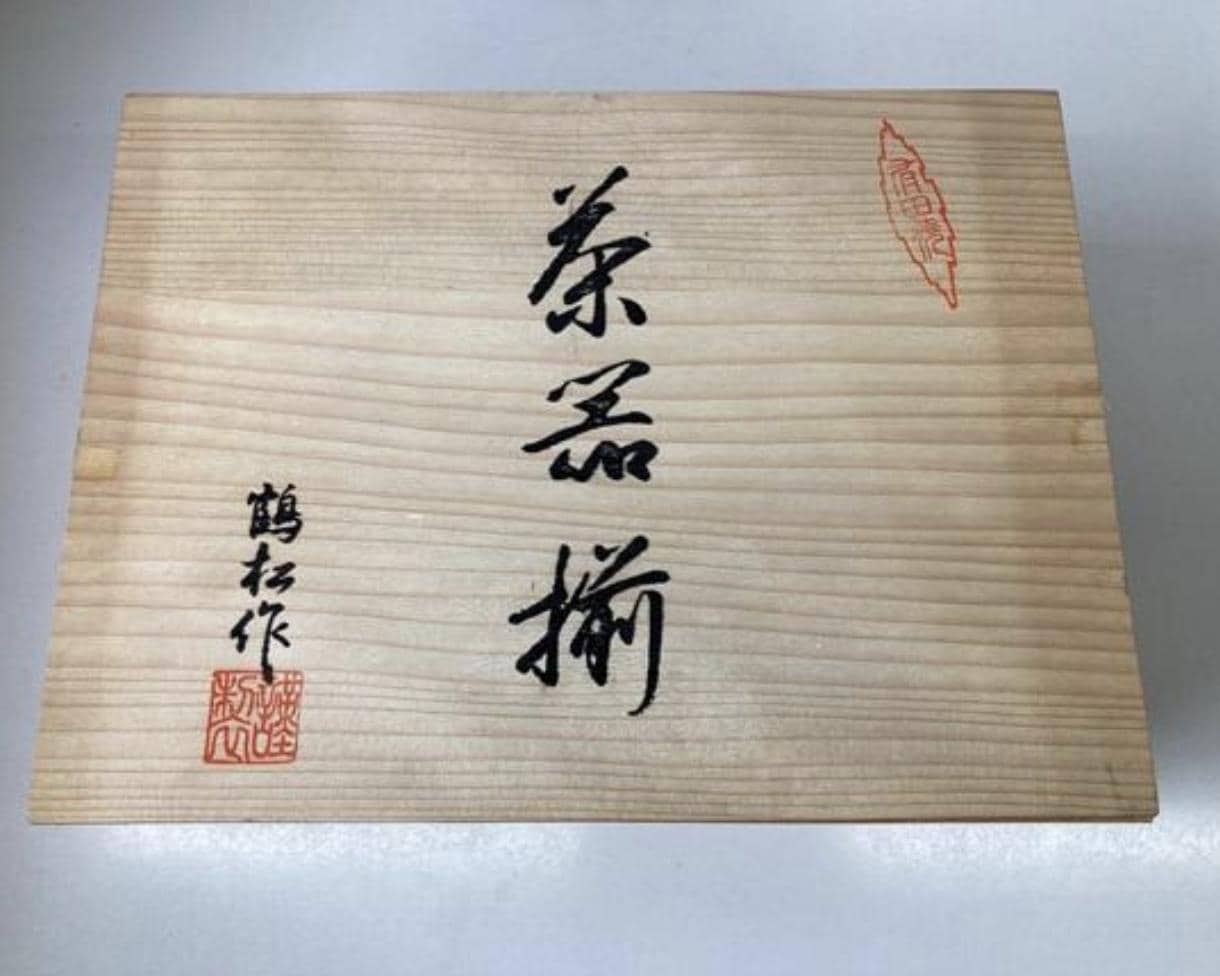 有田焼
茶器揃
鶴松作
謹製